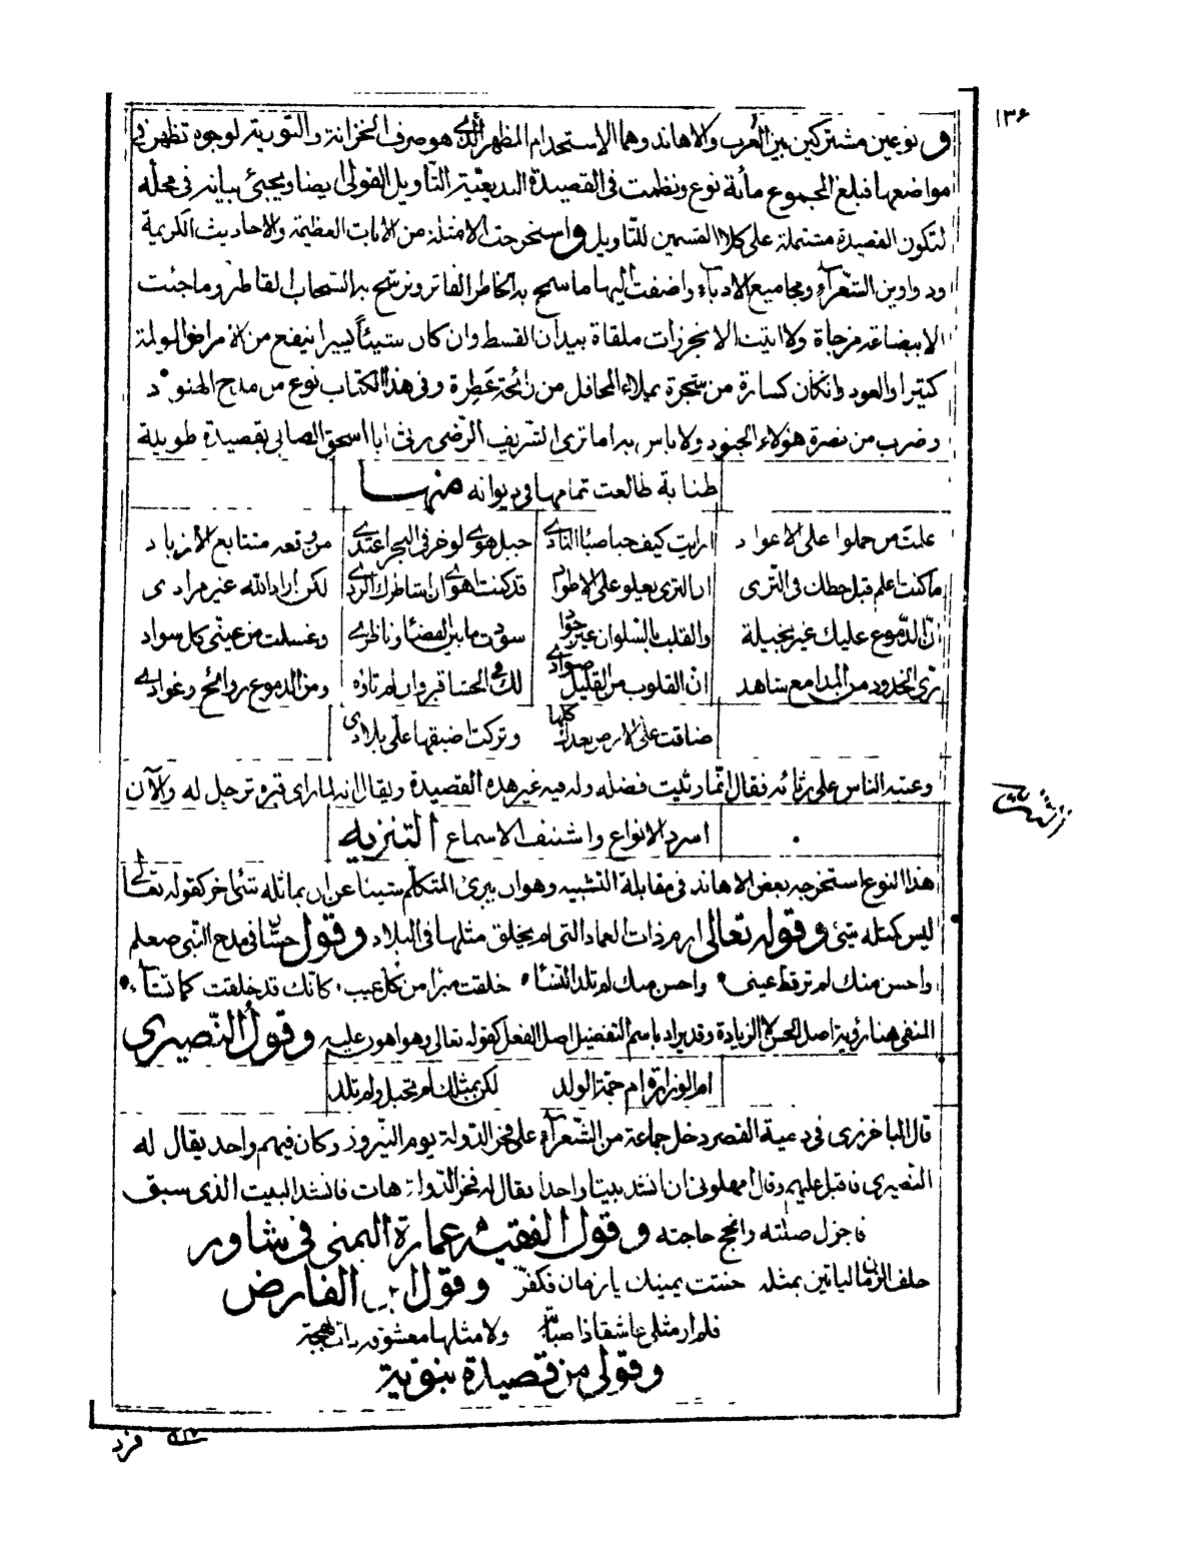 ١٣٦
و نوعين مشتركين بين العرب والاهاند وهما الاستخدام المظهر الذى هو صرف الخزانة والتورية لوجوه تظهر فى
مواضعها فبلغ المجموع مأة نوع ونظمت فى القصيدة البديعيّة التّاويل القولى ايضا ويجيئ بيانه فى محلّه
لتكون القصيدة مشتملة على كلا القسمين للتّاويل واستخرجت الامثلة من الايات العظيمة والاحاديث الكريمة
ودواوين الشعرآء ومجاميع الادبآء واضفت اليها ما سمح به الخاطر الفاتر وترشح به السّحاب القاطر وما جئت
الا ببضاعة مزجاة ولا اتيت الا بخرزات ملقاة بيد ان القسط وان كان شيئاً يسيرا ينفع من الامراض المولمة
كثيرا والعود وانكان كسارة من شجرة يملاء المحافل من رائحة عَطِرة وفى هذا الكتاب نوع من مدح الهنود
وضرب من نصرة هؤلاء الجنود ولا باس به اما ترى الشريف الرّضى رثى ابا اسحق الصابى بقصيدة طويلة
طنابة طالعت تمامها فى ديوانه منها
علمت من حملوا على الاعواد ارايت كيف خبا ضياء النادى جبل هوى لو خر فى البحر اغتدى من وقعه متتابع الازباد
ما كنت اعلم قبل حطك فى الثرى ان الثرى يعلو على الاطواد قد كنت اهوى ان اشاطرك الردى لكن اراد الله غير مرادى
انّ الدّموع عليك غير بخيلة والقلب بالسّلوان غير جواد سودت ما بين الفضاء وناظرى وغسلت من عينى كل سواد
رىّ الخدود من المدامع شاهد انّ القلوب من الغليل صوادى لك فى الحشا قبر وان لم تاوه ومن الدموع روائح وغوادى
ضاقت على الارض بعدك كلها وتركت اضيقها علىّ بلادى
وعتبه الناس على رثائه فقال انّما رثيت فضله وله فيه غير هذه القصيدة ويقال انه لما راى قبره ترجل له والآن
اسرد الانواع واشنف الاسماع التنزيه
هذا النوع استخرجه بعض الاهاند فى مقابلة التشبيه وهو ان يبرئ المتكلّم شيئا عن ان يماثله شئ اخر كقوله تعالى
ليس كمثله شئ وقوله تعالى ارم ذات العماد التى لم يخلق مثلها فى البلاد وقول حسّان فى مدح النّبى صعلم
واحسن منك لم تر قط عينى واحسن منك لم تلد النّساء خلقت مبرّا من كل عيب كانك قد خلقت كما تشآء
المنفى هنا رؤية اصل الحسن لا الزيادة وقد يراد باسم التفضيل اصل الفعل كقوله تعالى وهو اهون عليه وقول النّصيرى
ام الوزارة ام جمّة الولد لكن بمثلك لم تحبل ولم تلد
قال الباخرزى فى دمية القصر دخل جماعة من الشّعرآء على فخر الدّولة يوم النّيروز وكان فيهم واحد يقال له
النصيرى فاقبل عليهم وقال امهلونى ان انشد بيتا واحدا فقال له فخر الدّولة هات فانشد البيت الذى سبق
فاجزل صلته وانجح حاجته وقول الفقيه عمارة اليمنى فى شاور
حلف الزمان لياتين بمثله حنثت يمينك يا زمان فكفّر وقول ابن الفارض
فلم ار مثلى عاشقا ذا صبابة ولا مثلها معشوقة ذات بهجة
وقولى من قصيدة نبوّية
التنزيه
فرد